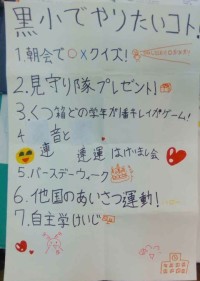 黒小でやりたいコト!
1.朝会で○×クイズ!
2.見守り隊プレゼント!
3.くつ箱どの学年が1番キレイかゲーム!
4 音と
連 運 はげまし会
5.バースデーウィーク
6.他国のあいさつ運動!
7.自主学けいじ